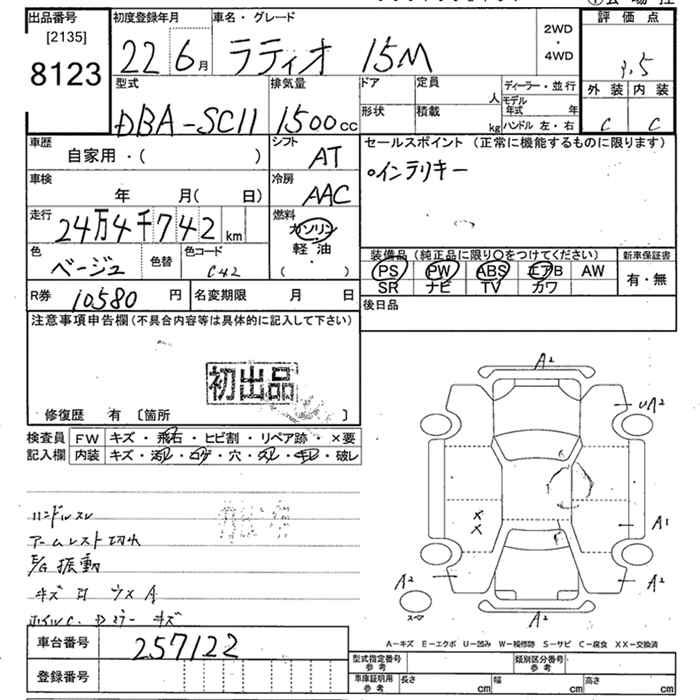 出品番号 [2135] 8123
初度登録年月 22 6月
車名・グレード ラティオ 15M
2WD・4WD
評価点 3.5
外装 内装
C C
型式 DBA-SC11
排気量 1500cc
ドア 定員 人
形状 積載 kg
ディーラー・並行
モデル年式 年
ハンドル 左・右
車歴 自家用・( )
シフト AT
セールスポイント (正常に機能するものに限ります)
インテリキー
車検 年 月(日)
冷房 AAC
走行 24万4千742 km
燃料 ガソリン・軽油 ( )
色 ベージュ 色替 色コード C42
装備品 (純正品に限り○をつけてください) 新車保証書
PS PW ABS エアB AW 有・無
SR ナビ TV カワ
R券 10580 円 名変期限 月 日
後日品
注意事項申告欄 (不具合内容等は具体的に記入して下さい)
初出品
修復歴 有 〔箇所 〕
検査員記入欄 FW キズ・飛石・ヒビ割・リペア跡・×要
内装 キズ・汚レ・コゲ・穴・スレ・キレ・破レ
ハンドルスレ
アームレスト切れ
振動
キズ
キズ
A2
UA2
A1
X
X
A2
A2
A2
スペア
A-キズ E-エクボ U-凹み W-補修跡 S-サビ C-腐食 XX-交換済
車台番号 257122
登録番号
型式指定番号 参考 類別区分番号 参考
車庫証明用 参考 長さ cm 幅 cm 高さ cm